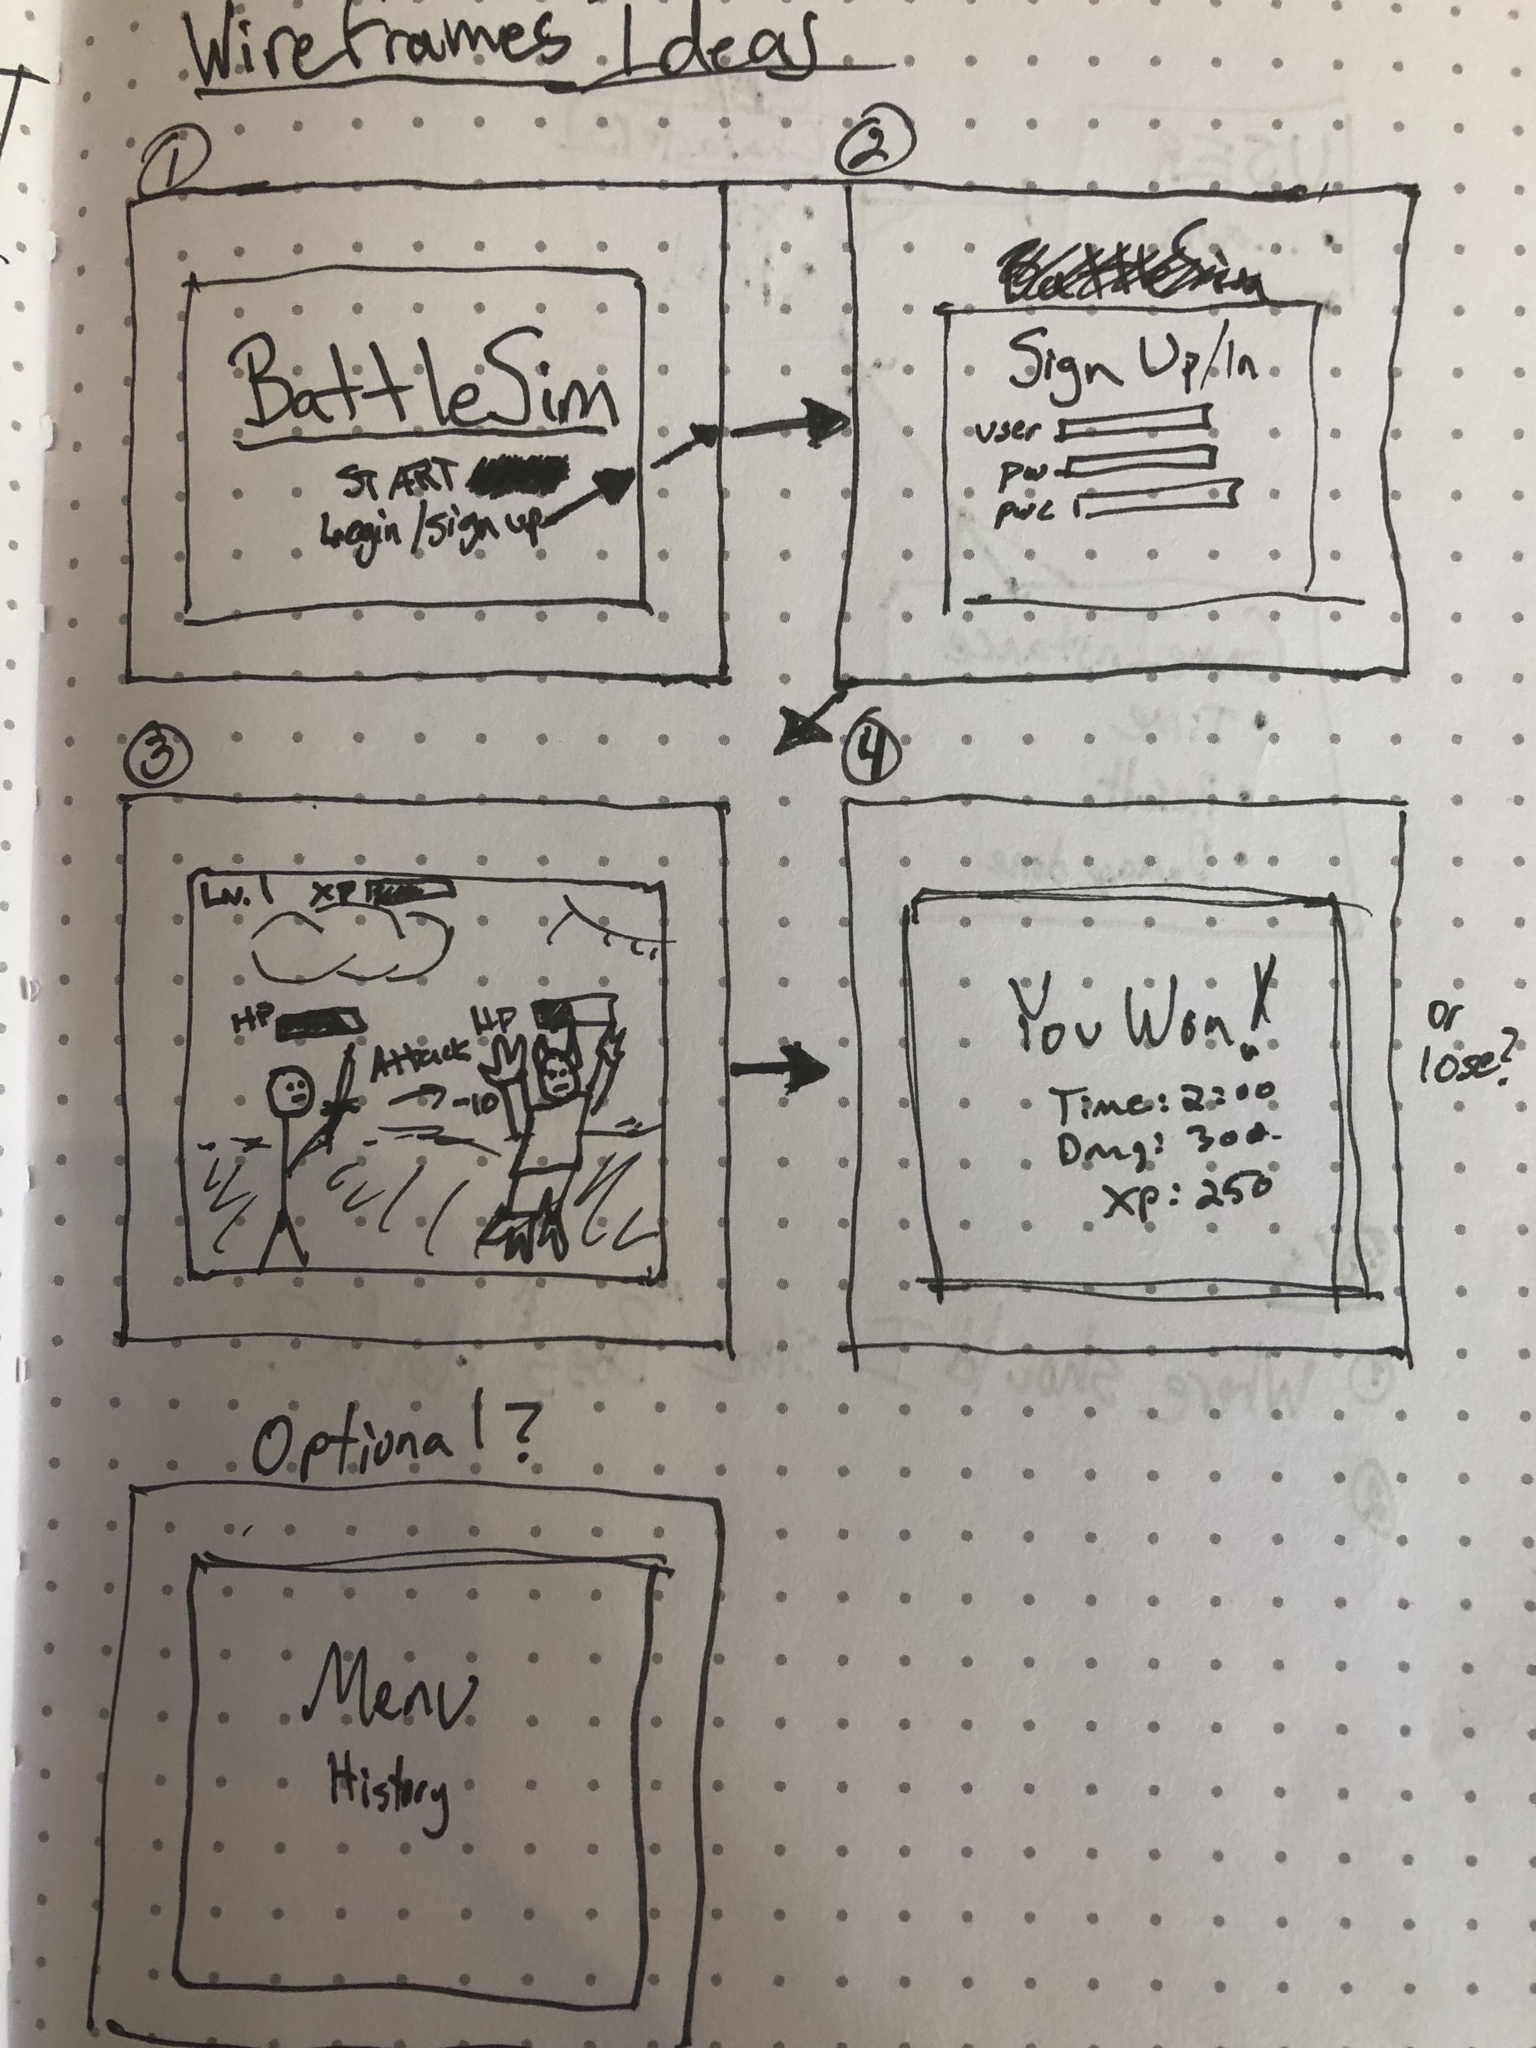 Wireframes Ideas
①
BattleSim
START
Login/sign up
②
Sign Up/In
user
pw
pwc
③
Lv. 1 XP
HP
HP
Attack
-10
④
You Won!
Time: 2:00
Dmg: 300
XP: 250
or
lose?
Optional?
Menu
History